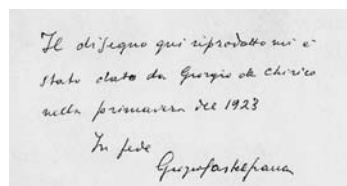 Il disegno qui riprodotto mi è
stato dato da Giorgio de Chirico
nella primavera del 1923
In fede
Giorgio Castelfranco